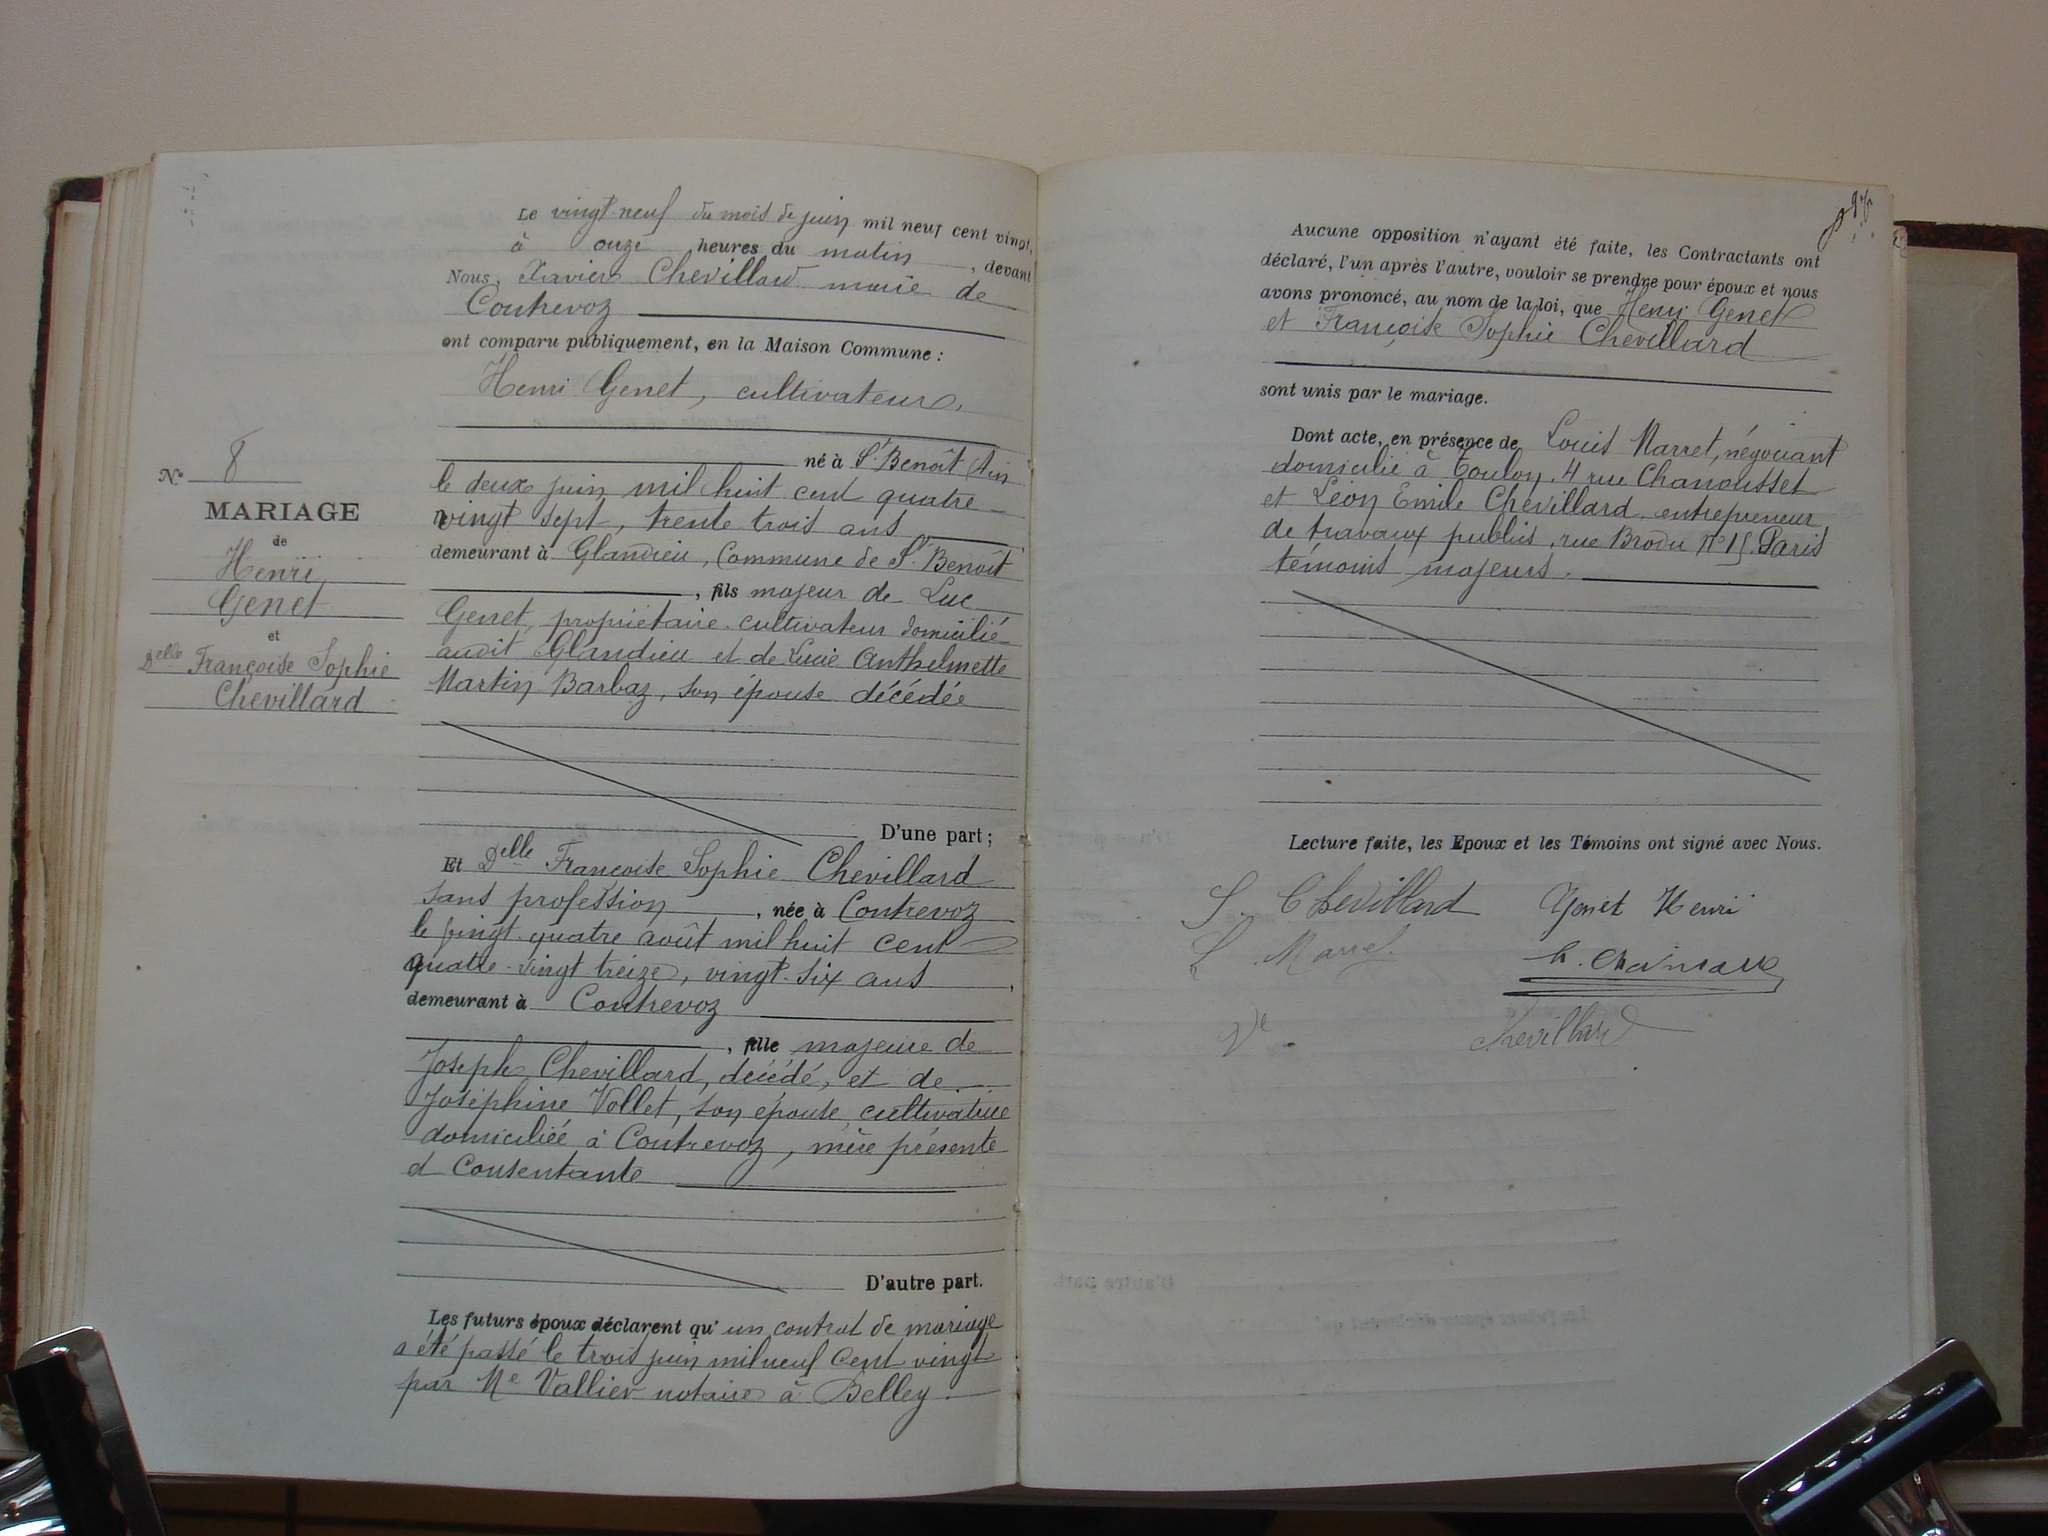 Le vingt-neuf du mois de juin mil neuf cent vingt,
à onze heures du matin, devant
Nous, Xavier Chevillard maire de
Contrevoz
ont comparu publiquement, en la Maison Commune :
Henri Genet, cultivateur,
né à St Benoît Ain
le deux juin mil huit cent quatre
vingt sept, trente trois ans
demeurant à Glandieu, Commune de St Benoît
, fils majeur de Luc
Genet, propriétaire-cultivateur domicilié
audit Glandieu et de Lucie Anthelmette
Martin Barbaz, son épouse décédée
D'une part ;
N° 8
MARIAGE
de
Henri
Genet
et
Delle Françoise Sophie
Chevillard
Et Delle Françoise Sophie Chevillard
sans profession, née à Contrevoz
le vingt-quatre août mil huit cent
quatre-vingt treize, vingt-six ans,
demeurant à Contrevoz
, fille majeure de
Joseph Chevillard, décédé, et de
Joséphine Vollet, son épouse, cultivatrice
domiciliée à Contrevoz, mère présente
et Consentante
D'autre part.
Les futurs époux déclarent qu'un contrat de mariage
a été passé le trois juin mil neuf cent vingt
par Me Vallier notaire à Belley.
Aucune opposition n'ayant été faite, les Contractants ont
déclaré, l'un après l'autre, vouloir se prendre pour époux et nous
avons prononcé, au nom de la loi, que Henri Genet
et Françoise Sophie Chevillard
sont unis par le mariage.
Dont acte, en présence de Louis Marret, négociant
domicilié à Toulon, 4 rue Chanousset
et Léon Emile Chevillard, entrepreneur
de travaux publics, rue Brodu N° 15 Paris
témoins majeurs.
Lecture faite, les Epoux et les Témoins ont signé avec Nous.
S. Chevillard Genet Henri
L. Marret
Ve Chevillard